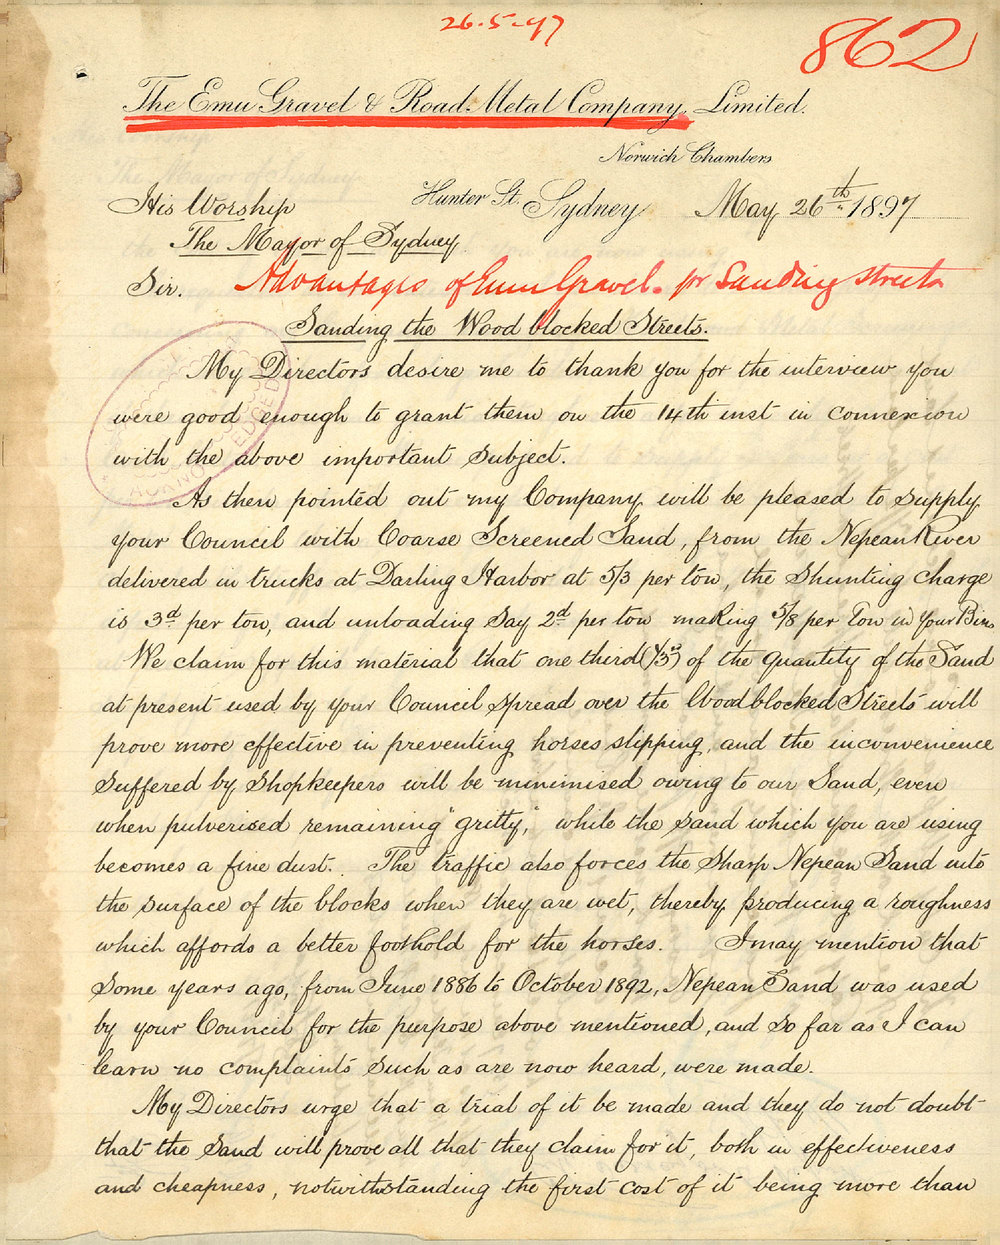 26-5-97
862
The Emu Gravel & Road Metal Company, Limited.
Norwich Chambers
Hunter St. Sydney May 26th 1897
His Worship
The Mayor of Sydney
Sir.
Advantages of Emu Gravel for Sanding Streets
Sanding the Wood blocked Streets.
My Directors desire me to thank you for the interview you
were good enough to grant them on the 14th inst in connexion
with the above important subject.
As then pointed out my Company will be pleased to supply
your Council with Coarse Screened Sand, from the Nepean River
delivered in trucks at Darling Harbor at 5/3 per ton, the shunting charge
is 3d per ton, and unloading say 2d per ton making 5/8 per Ton in your Bins
We claim for this material that one third (1/3rd) of the quantity of the Sand
at present used by your Council spread over the Woodblocked Streets will
prove more effective in preventing horses slipping, and the inconvenience
suffered by shopkeepers will be minimised owing to our Sand, even
when pulverised remaining "gritty," while the sand which you are using
becomes a fine dust. The traffic also forces the sharp Nepean Sand into
the surface of the blocks when they are wet, thereby producing a roughness
which affords a better foothold for the horses. I may mention that
some years ago, from June 1886 to October 1892, Nepean Sand was used
by your Council for the purpose above mentioned, and so far as I can
learn no complaints such as are now heard, were made.
My Directors urge that a trial of it be made and they do not doubt
that the Sand will prove all that they claim for it, both in effectiveness
and cheapness, notwithstanding the first cost of it being more than